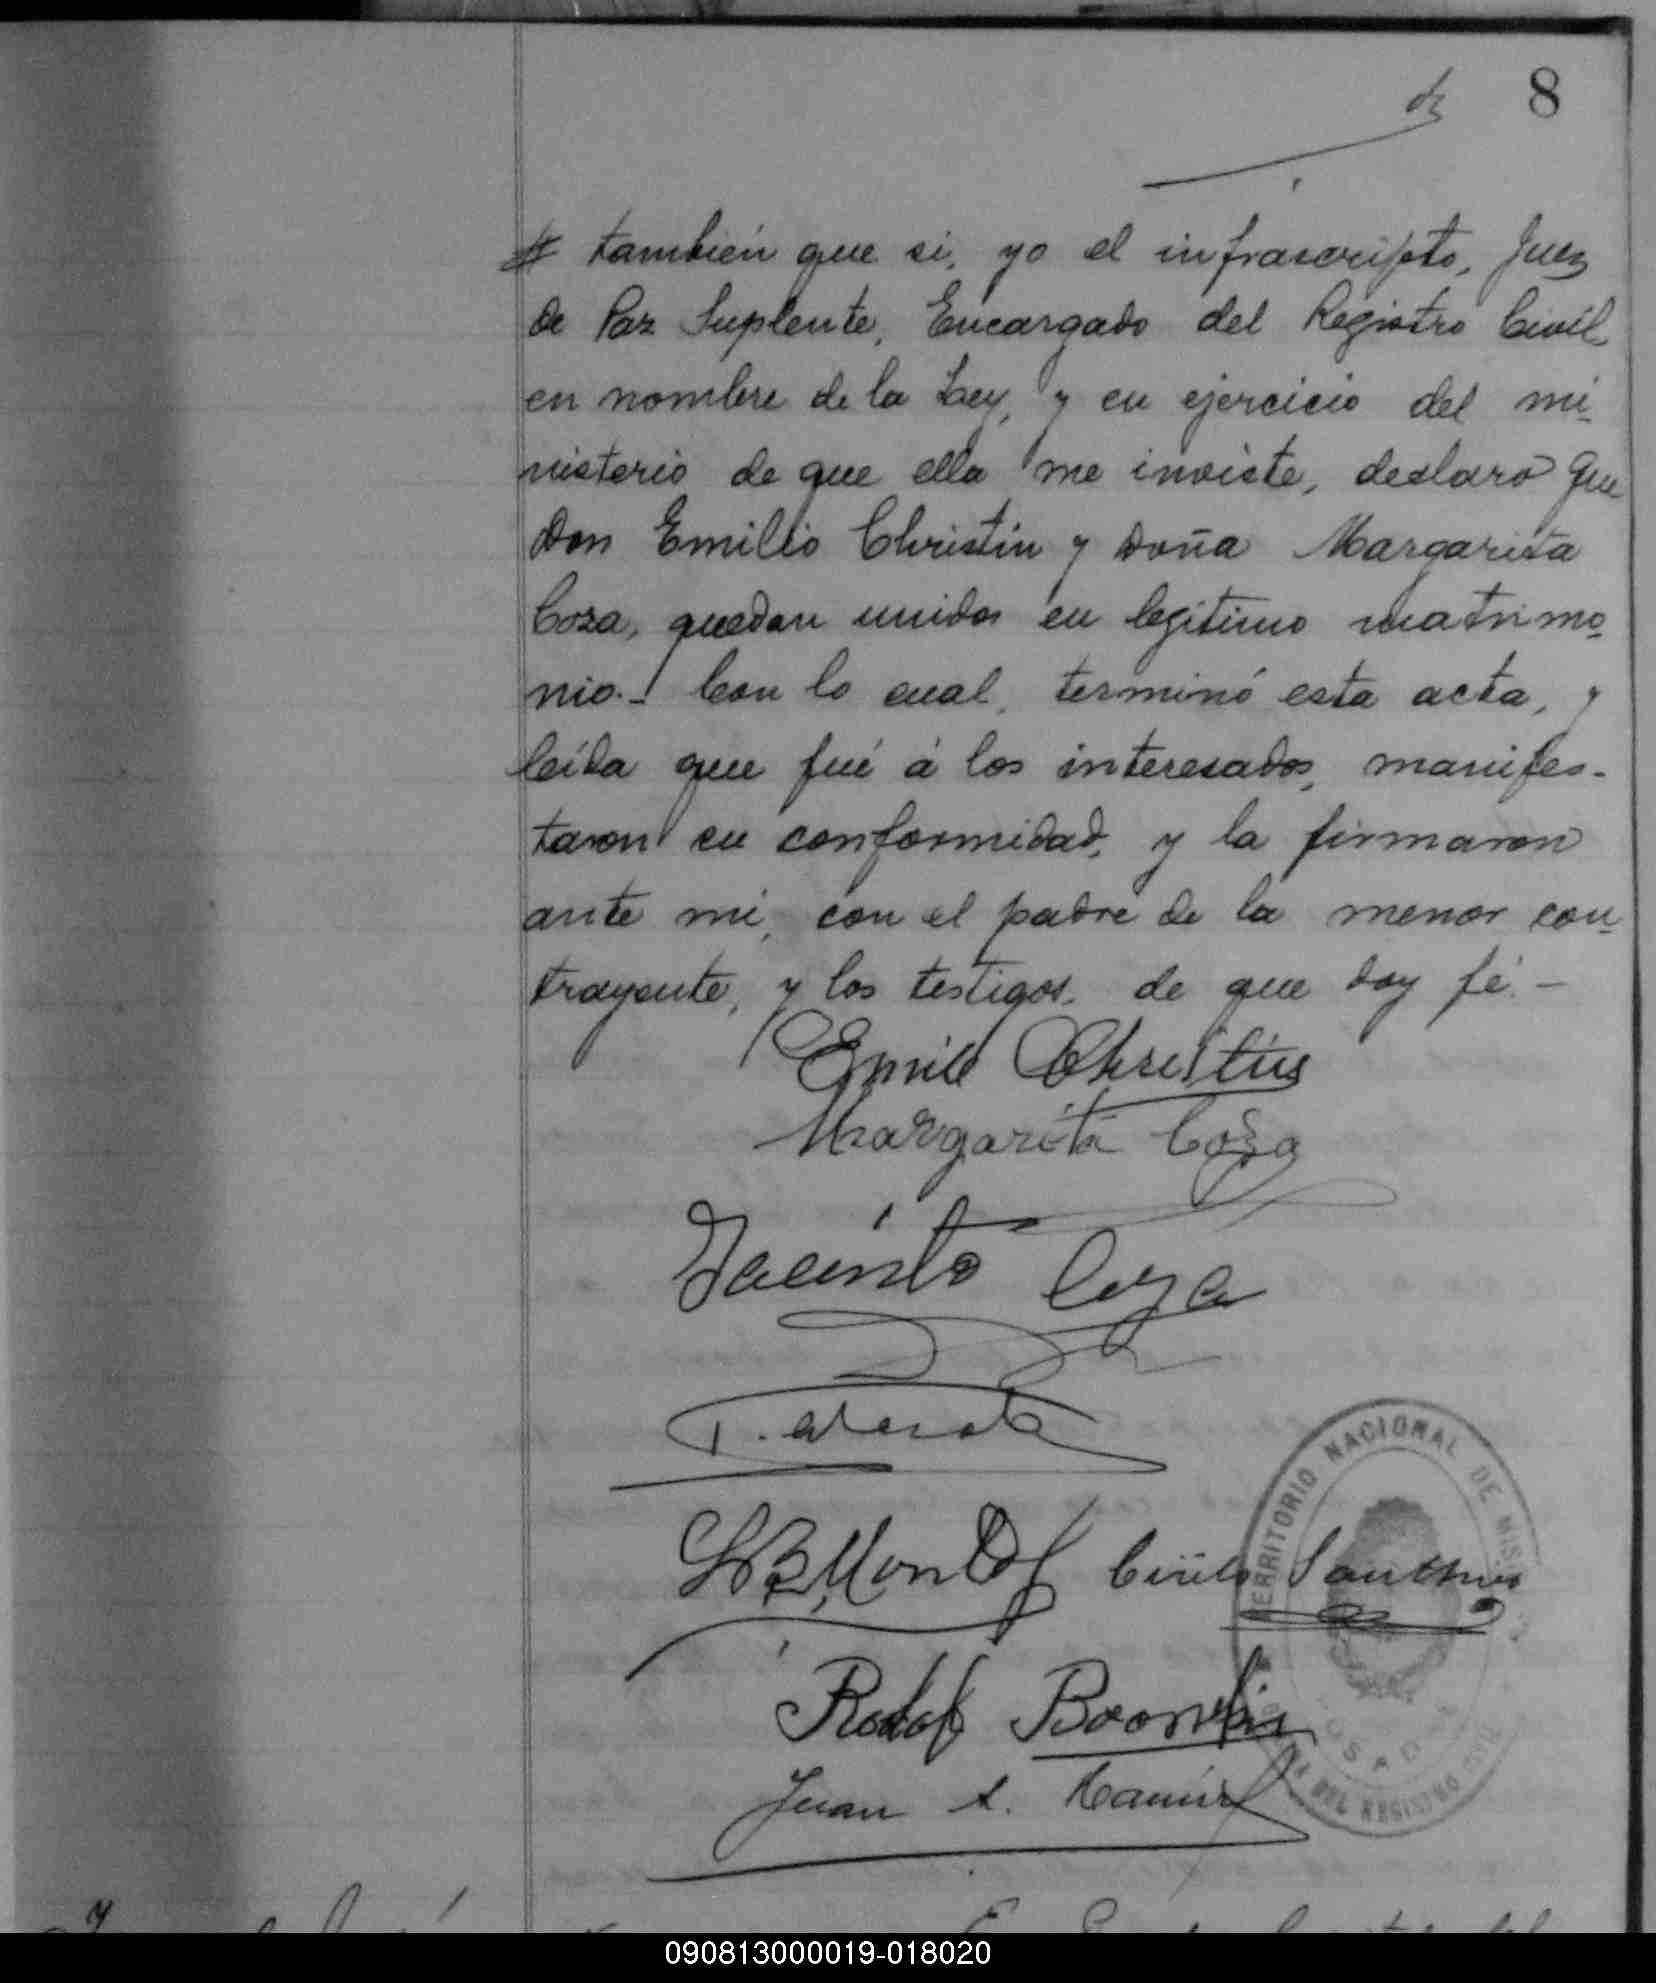 8
también que si, yo el infrascripto, Juez
de Paz Suplente, Encargado del Registro Civil
en nombre de la Ley, y en ejercicio del mi-
nisterio de que ella me inviste, declaro que
Don Emilio Christin y Doña Margarita
Coza, quedan unidos en legitimo matrimo-
nio.- Con lo cual, terminó esta acta, y
leída que fué á los interesados, manifes-
taron su conformidad, y la firmaron
ante mi, con el padre de la menor con-
trayente, y los testigos, de que doy fé.-
Emile Christin
Margarita Coza
Jacinto Coza
Juan A. Ramirez
TERRITORIO NACIONAL DE MISIONES
DEL REGISTRO CIVIL
090813000019-018020